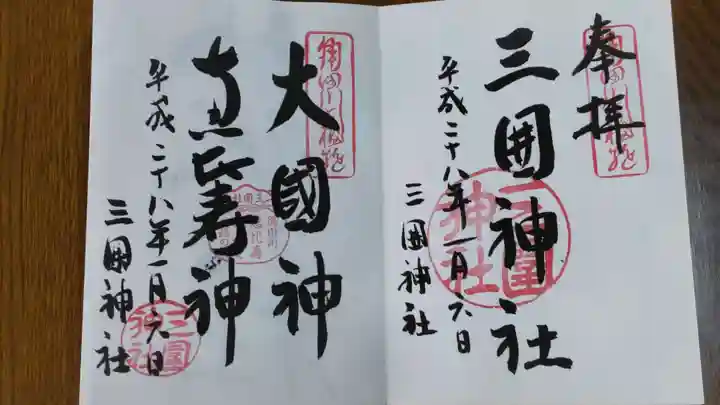 奉拝
三囲神社
平成二十八年一月六日
三囲神社
三囲神社
大國神
恵比寿神
平成二十八年一月六日
三囲神社
三囲神社